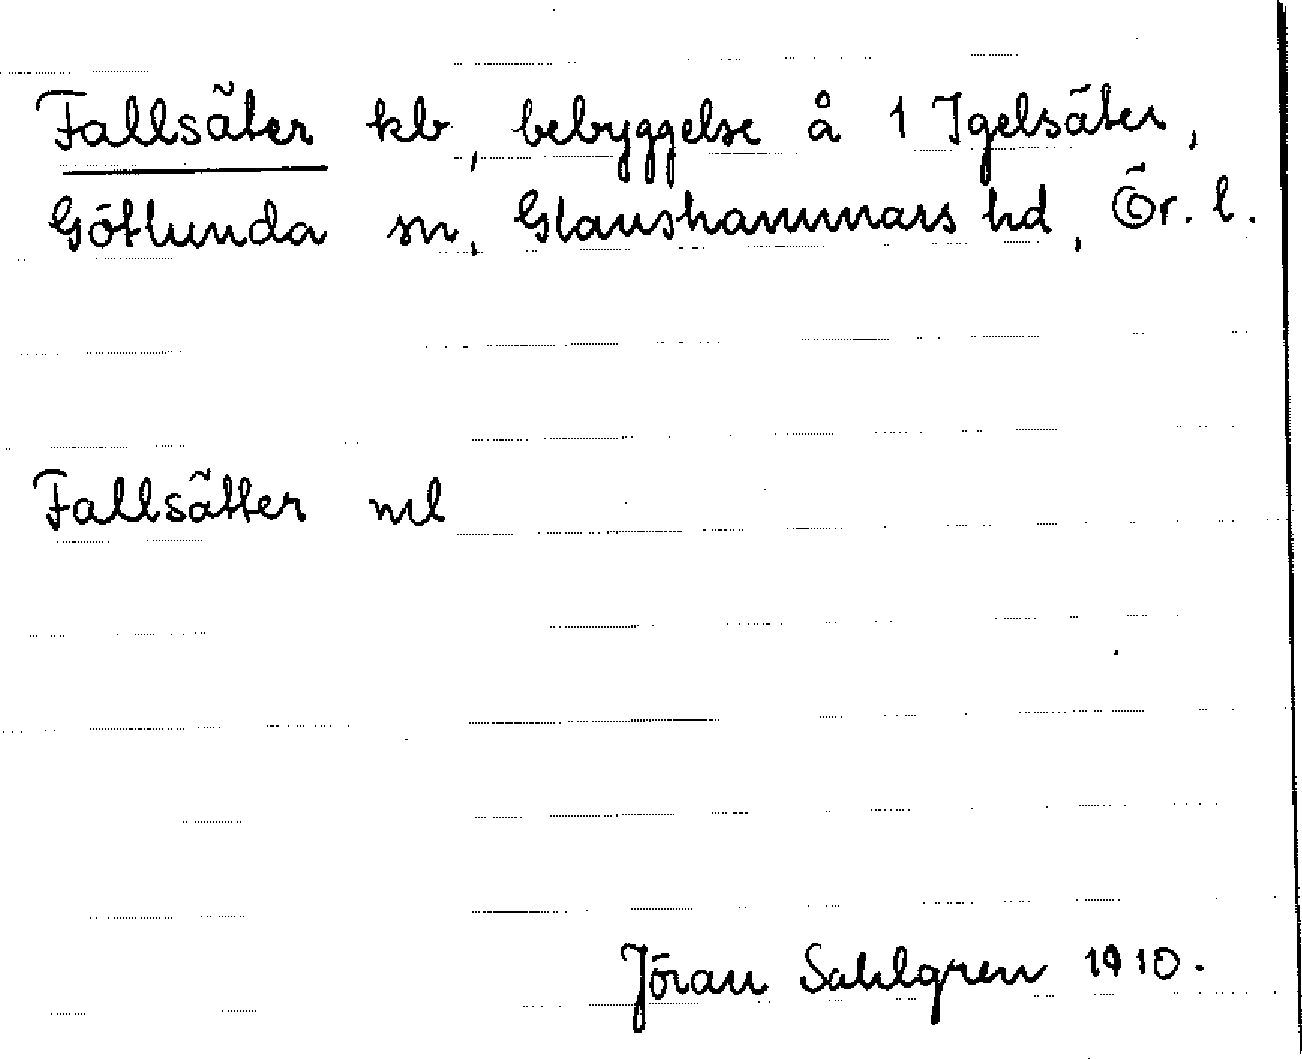 Fallsäter kb, bebyggelse å 1 Igelsäter,
Götlunda sn, Glanshammars hd, Ör. l.
Fallsätter ml
Jöran Sahlgren 1910.